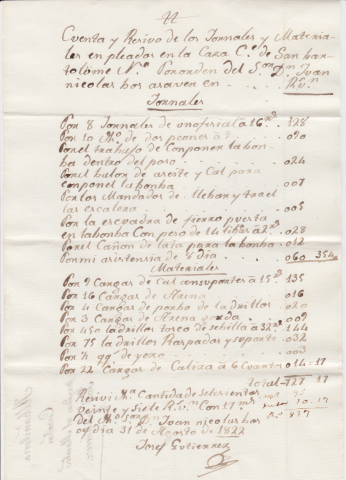 Cuenta y Resivo de los Jornales y Materia-
les en pleados en la Caza C.e de San bar-
tolome N.o Por orden del S.or D.n Juan
nicolas bos aroeven en R.s v.n
Jornales
Por 8 Jornales de un oficial a 16 r.s 128
Por 10 de dos peones a 9 090
Por el trabajo de Conponer la bon
ba dentro del poso 024
Por el baton de aseite y Cal para
conponel la bonba 007
Por los Mandados de llebar y trael
las escalera 005
Por la escuadra de fierro puerta
en la bonba Con peso de 14 libras a 2 r.s 028
Por el Cañon de lata para la bonba 012
Por mi asistensia de 8 dia 060 354
Materiales
Por 9 Cargas de Cal con su porte a 15 r.s 135
Por 16 Cargas de Arena 016
Por 4 Cargas de polbo de ladrillos 020
Por 3 Cargas de Arena gorda 009
Por 450 ladrillos tosco de sebilla a 32 r.s 144
Por 75 ladrillos Raspados y su porte 032
Por de yezo 003
Por 22 Cargas de Caliza a 6 Cuarto 014-17
total-727 17
Resivi la Cantidad de setesientos
Veinte y siete R.s v.n Con 17 m.s
del S.r D. Juan nicolas bos
oy dia 31 de Agosto de 1822
Josef Gutierrez